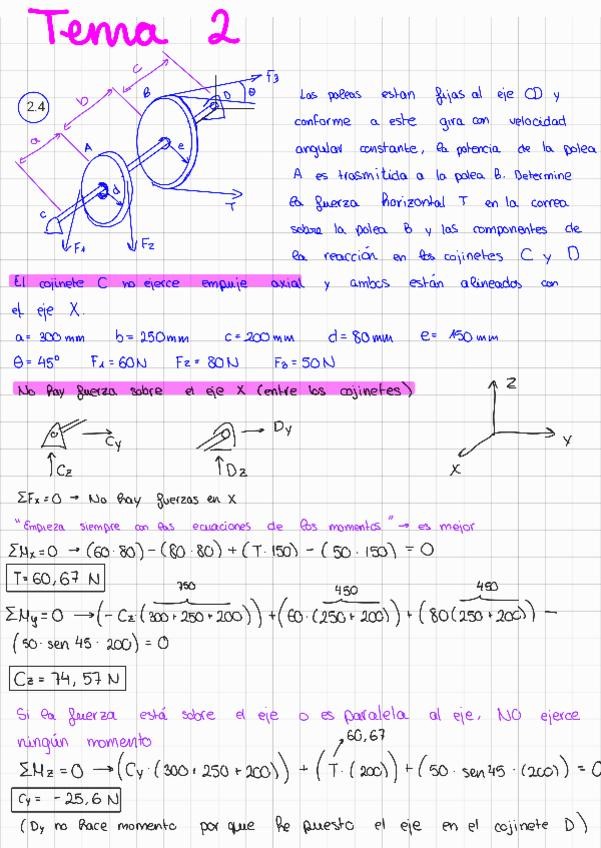 Tema 2
2.4
a
b
c
A
B
C
D
d
e
θ
F1
F2
F3
T
Las poleas estan fijas al eje CD y
conforme a este gira con velocidad
angular constante, la potencia de la polea
A es trasmitida a la polea B. Determine
la fuerza horizontal T en la correa
sobre la polea B y las componentes de
la reacción en los cojinetes C y D
El cojinete C no ejerce empuje axial y ambos están alineados con
el eje X.
a= 300 mm b= 250mm c= 200mm d= 80mm e= 150 mm
θ= 45° F1= 60N F2= 80N F3= 50N
No hay fuerza sobre el eje X (entre los cojinetes)
Cy
Cz
Dy
Dz
Z
Y
X
ΣFx=0 → No hay fuerzas en X
"Empieza siempre con las ecuaciones de los momentos" → es mejor
ΣMx=0 → (60·80)-(80·80)+(T·150)-(50·150)=0
T=60,67 N
750 450 450
ΣMy=0 →(-Cz·(300+250+200))+(60·(250+200))+(80(250+200))-
(50·sen 45·200)=0
Cz= 74,57N
Si la fuerza está sobre el eje o es paralela al eje, NO ejerce
ningún momento
60,67
ΣMz=0 →(Cy·(300+250+200))+(T·(200))+(50·sen45·(200))=0
Cy= -25,6 N
(Dy no hace momento por que he puesto el eje en el cojinete D)